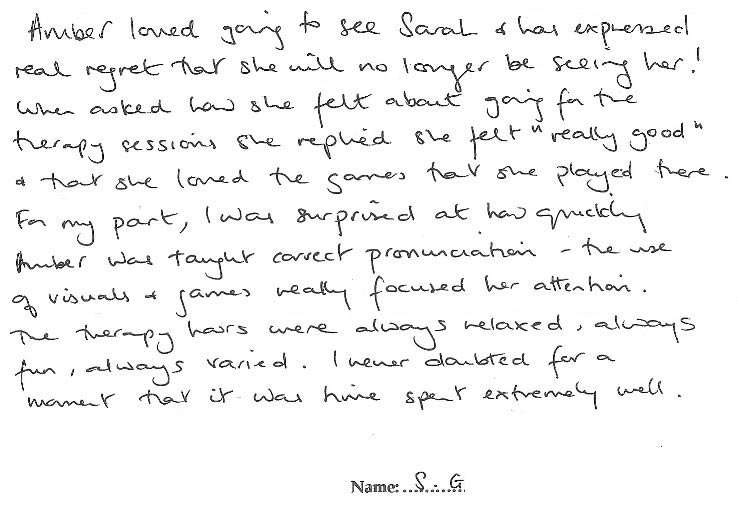 Amber loved going to see Sarah & has expressed
real regret that she will no longer be seeing her!
When asked how she felt about going for the
therapy sessions she replied she felt "really good"
& that she loved the games that she played there.
For my part, I was surprised at how quickly
Amber was taught correct pronunciation – the use
of visuals & games really focused her attention.
The therapy hours were always relaxed, always
fun, always varied. I never doubted for a
moment that it was time spent extremely well.
Name:...S...G